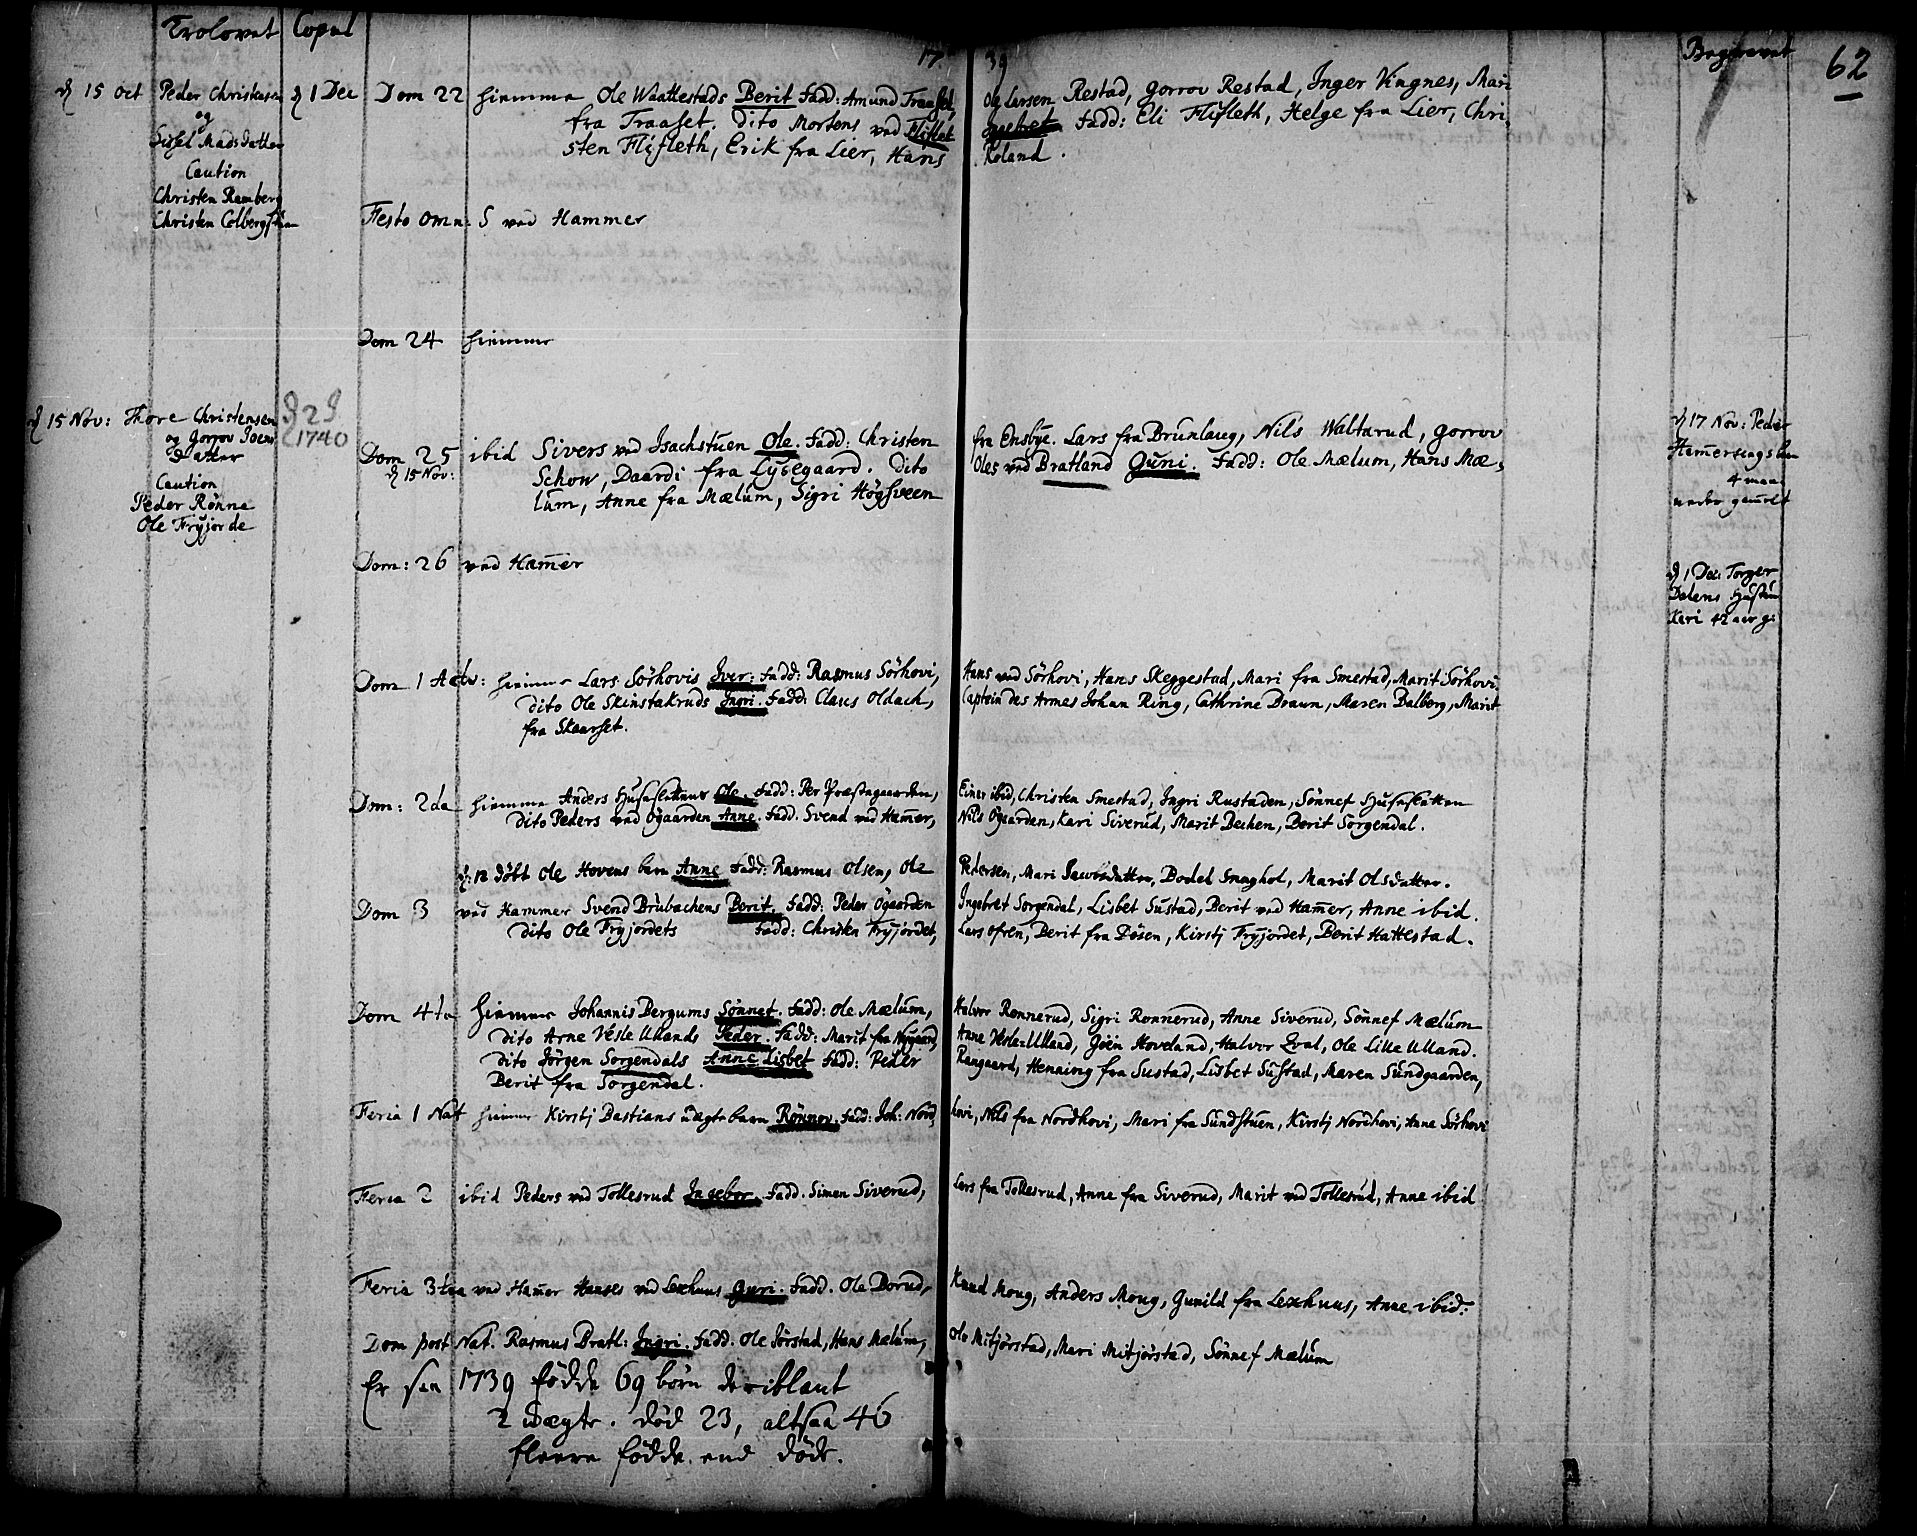 Trolovet Copul 17 39 Begravet 62
d 15 oct Peder Christensen d 1 Dec
og
Sizel Mads datter
Caution
Christen Ramberg
Christen Colbergstuen
Dom 22 hiemme Ole Waattestads Berit Fadd: Amund Traaset, Og Larsen Restad, Gorrov Restad, Inger Vingnes, Mari
fra Traaset. Dito Mortens ved Fliflet Ingebret Fadd: Eli Flifleth, Helge fra Lier, Chri-
sten Flifleth, Erik fra Lier, Hans Roland.
Festo omn: S ved Hammer
Dom 24 hiemme
d 15 Nov: Thore Christensen d 2 J
og Gorrov Joens 1740
datter
Caution
Peder Rönne
Ole Fryjorde
Dom 25 ibid Sivers ved Isachstuen Ole. Fadd: Christen fra Ensbye. Lars fra Brunlaug, Nils Waltarud, Gorrov
d 15 Nov: Schow, Daardi fra Lysegaard. Dito Oles ved Bratland Guni. Fadd: Ole Mælum, Hans Mæ-
lum, Anne fra Mælum, Sigri Högsveen
d 17 Nov: Peder
Hamersengs
4 maan
uker gamelt
Dom: 26 ved Hamer
d 1 Dec: Torger
Dalens Hustru
Kari 42 aar g:
Dom 1 Adv: hiemme Lars Sörhovis Iver: Fadd: Rasmus Sörhovi, Hans ved Sörhovi, Hans Skeggestad, Mari fra Smestad, Marit Sörhovi.
Dito Ole Skinstakruds Ingri. Fadd: Claus Oldach, Captein des Armes Johan Ring, Cathrine Braun, Maren Dalberg, Marit
fra Skaarset.
Dom: 2da hiemme Anders Huseslettens Ole. Fadd: Per Præstegaarden, Einer ibid, Christen Smestad, Ingri Rustaden, Sönnef Husesletten
Dito Peders ved Ögaarden Anne. Fadd. Svend ved Hamer, Nils Ögaarden, Kari Siverud, Marit Bechen, Berit Sorgendal.
d: 12 döbt Ole Hovens barn Anne Fadd: Rasmus Olsen, Ole Pedersen, Mari Jacobsdatter, Bodel Smaghol, Marit Olsdatter.
Dom 3 ved Hammer Svend Brubachens Berit. Fadd: Peder Ögaarden Ingebret Sorgendal, Lisbet Sustad, Berit ved Hamer, Anne ibid.
Dito Ole Fryjordets Fadd: Christen Fryjordet, Lars ofren, Berit fra DöSen, Kirstj Fryjordet, Berit Hattestad.
Dom 4ta hiemme Johannis Bergums Sönnet. Fadd: Ole Mælum, Halvor Rønnerud, Sigri Ronnerud, Anne Siverud, Sönnef Mælum
Dito Arne Vesle Ullands Peder. Fadd: Marit fra Nygaard, Anne Vesle Ulland, Goen Hoveland, Halvor Zval, Ole Lille Ulland.
Dito Jörgen Sorgendals Anne Lisbet Fadd: Peder Raagaard, Henning fra Sustad, Lisbet Sustad, Maren Sundgaarden,
Berit fra Sorgendal.
Feria 1 Nat hiemme Kirstj Bastians uægte barn Rönnov. Fadd: Joh: Nord- hovi, Nils fra Nordhovi, Mari fra Sundstuen, Kirstj Nordhovi, Anne Sörhovi
Feria 2 ibid Peders ved Tollesrud Ingebor. Fadd. Simen Siverud, Lars fra Tollesrud, Anne fra Siverud, Marit ved Tollesrud, Anne ibid
Feria 3tia ved Hamer Hanses ved Lexhuus Guri. Fadd. Ole Dorud, Knud Moug, Anders Moug, Gunild fra Lexhuus, Anne ibid:
Dom post Nat. Rasmus Bratl: Ingri. Fadd. Ole Jörstad, Hans Mælum, Ole Mitjörstad, Mari Mitjörstad, Sönnef Mælum
Er saa 1739 födde 69 börn deriblant
2 uægte. död 23, altsaa 46
fleere födde end döde.